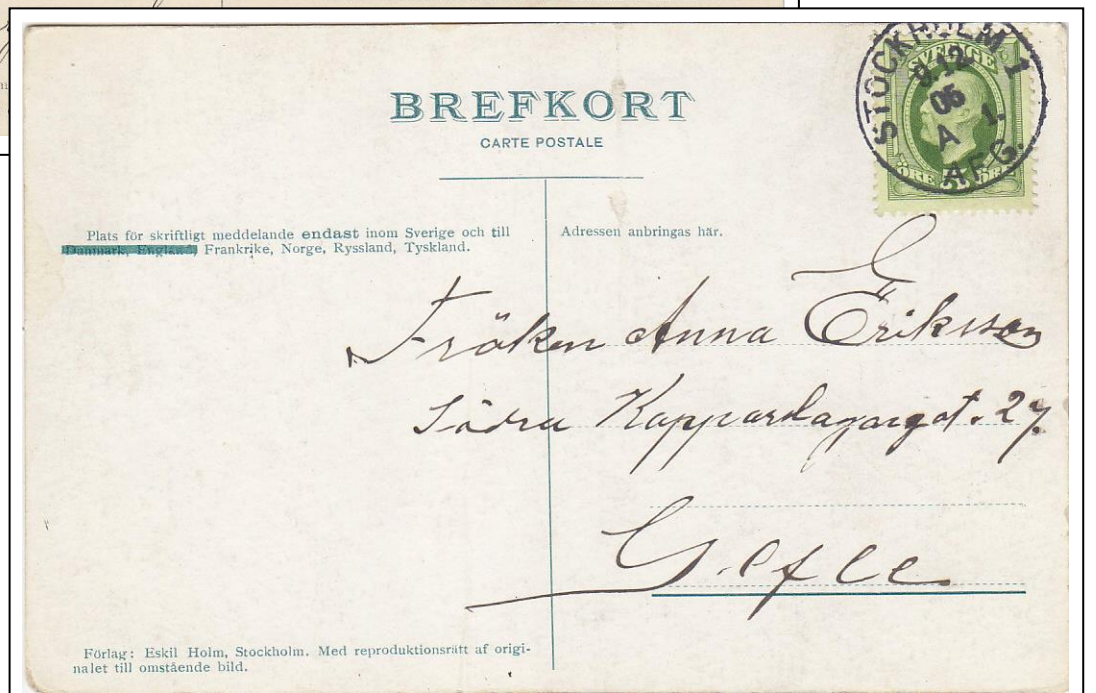 BREFKORT
CARTE POSTALE
STOCKHOLM 1
9.12
06
A 1.
AFG.
SVERIGE
Plats för skriftligt meddelande endast inom Sverige och till
Danmark, England, Frankrike, Norge, Ryssland, Tyskland.
Adressen anbringas här.
Fröken Anna Eriksson
Södra Kappardagargat. 27.
Gefle
Förlag: Eskil Holm, Stockholm. Med reproduktionsrätt af origi-
nalet till omstående bild.